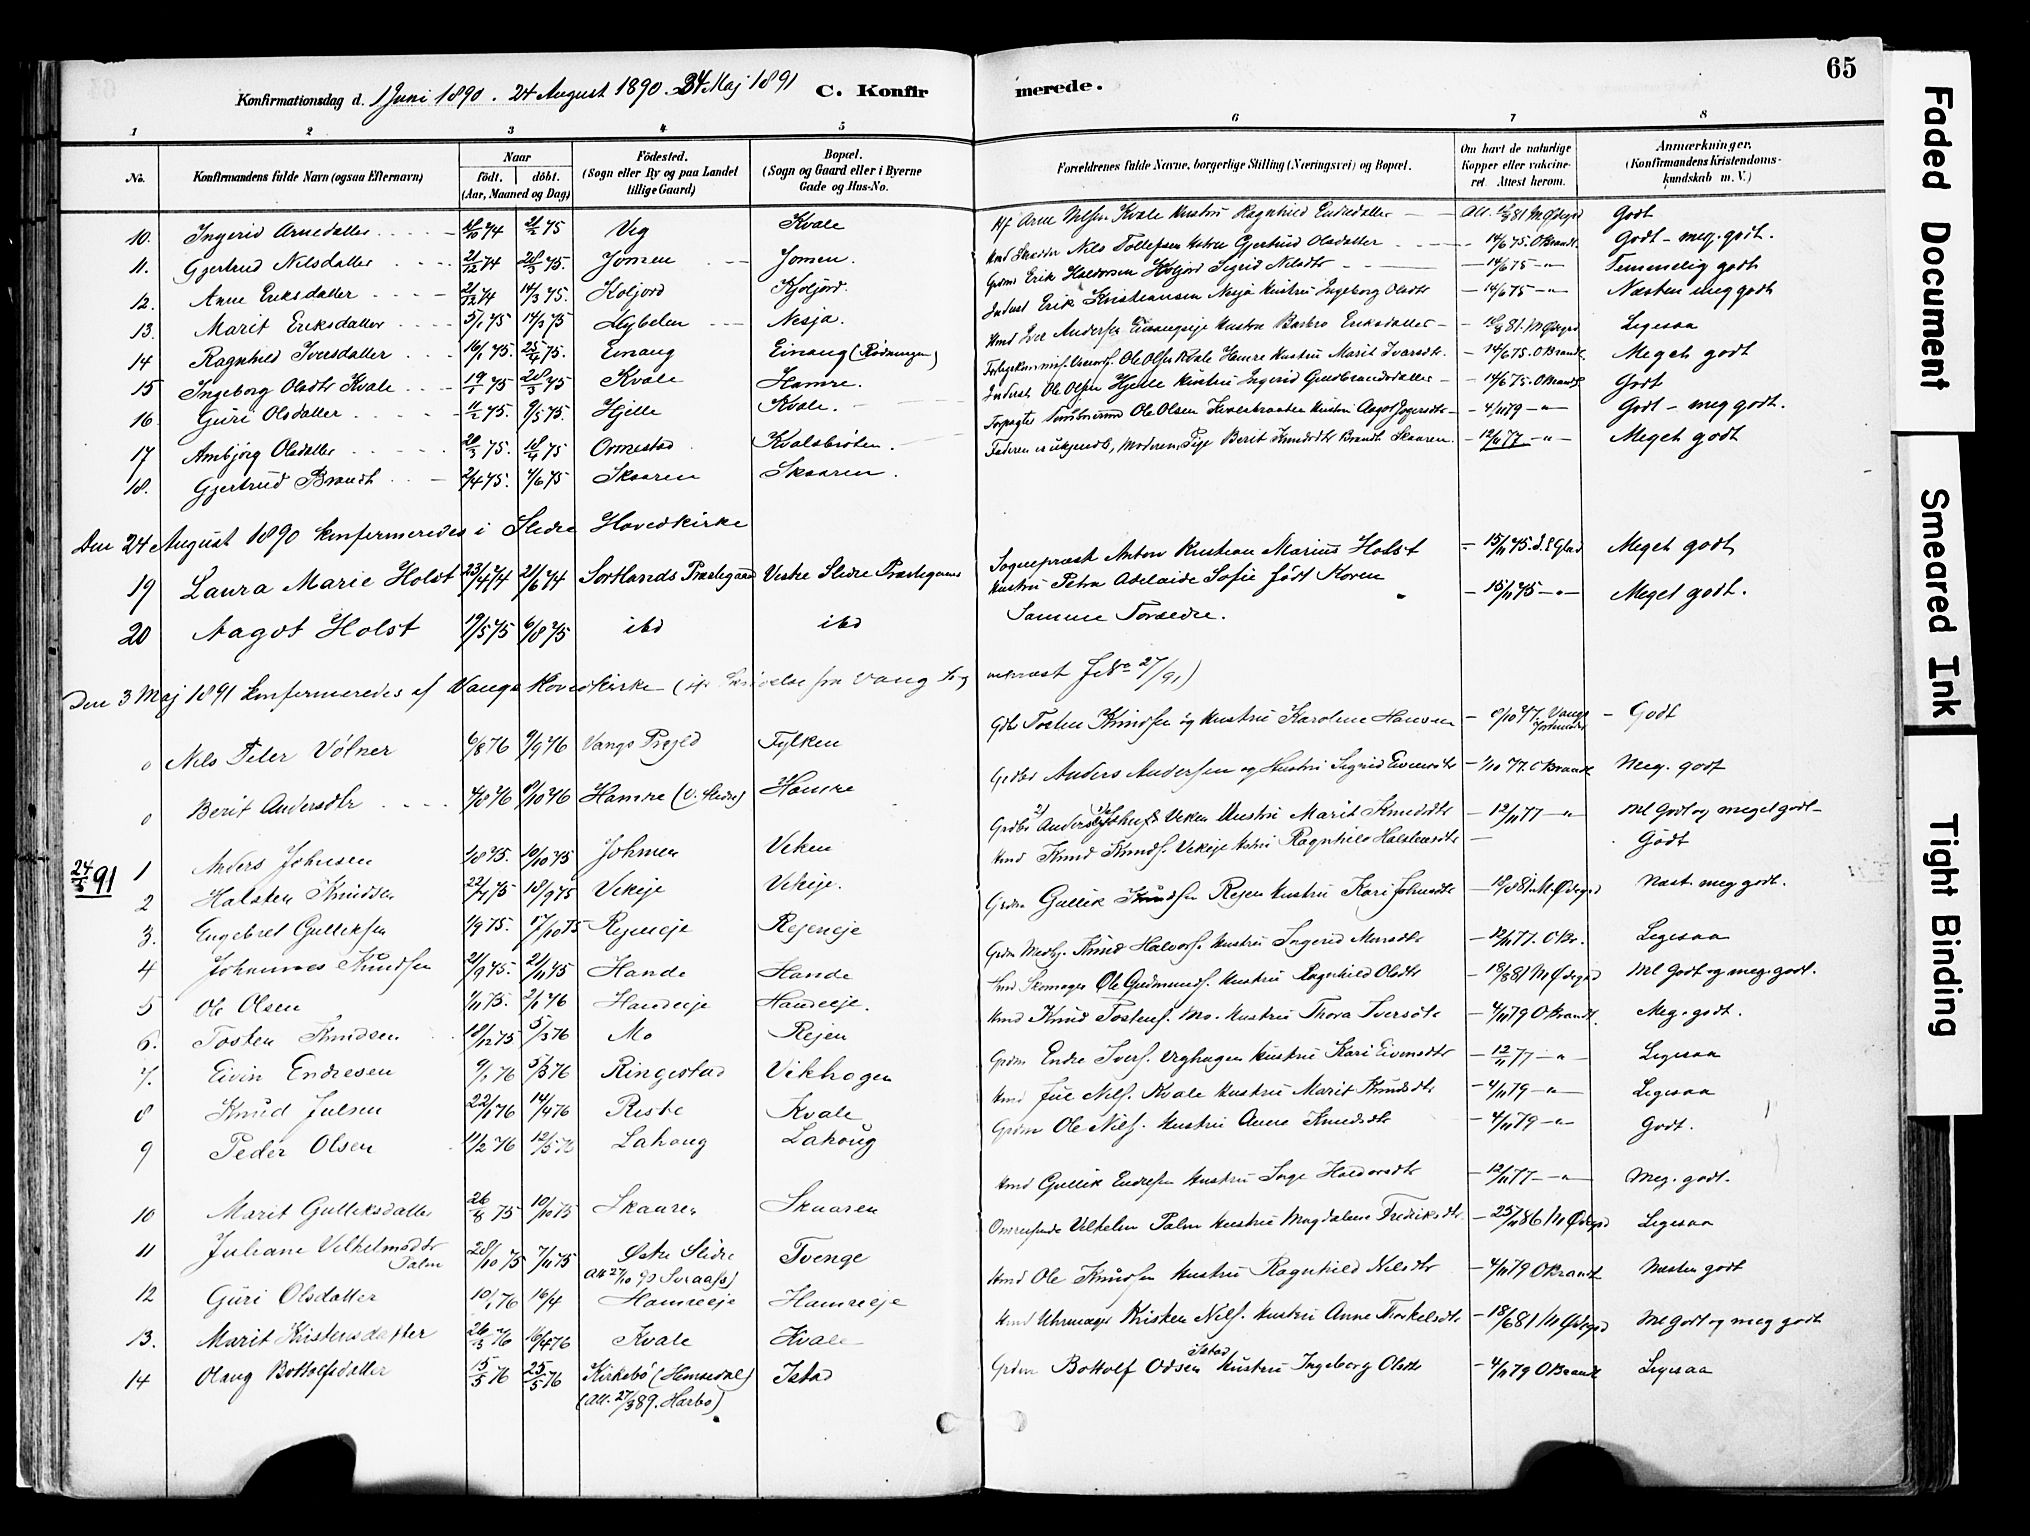 65
Konfirmationsdag d. 1 Juni 1890. 24 August 1890. 24 Maj 1891 C. Konfir merede.
1 2 3 4 5 6 7 8
No. Konfirmandens fulde Navn (ogsaa Efternavn) Naar födt. döbt. (Aar, Maaned og Dag) Födested. (Sogn eller By og paa Landet tillige Gaard) Bopæl. (Sogn og Gaard eller i Byerne Gade og Hus-No. Forældrenes fulde Navne, borgerlige Stilling (Næringsvei) og Bopæl. Om havt de naturlige Kopper eller vakcineret. Attest herom. Anmærkninger. (Konfirmandens Kristendomskundskab m. V.)
10. Ingerid Arnedatter 74 2/2 75 Veg Kvale Arne Nilsen Kvale Hustru Ragnhild Endredatter Godt
11. Gjertrud Nilsdatter 21/12 74 28/3 75. Jomen Jomen. Nils Tollefsen Hustru Gjertrud Olsdatter 14/6 75. O Brandt Godt - meg. godt.
12. Anne Eriksdatter 21/12 74 14/3 75. Koljord Kjoljord. Erik Haldorsen Koljord Sigrid Nilsdtr 14/6 75 -"- Temmelig godt
13. Marit Eriksdatter 5/1 75 14/3 75 Nybelen Nesja. Inderst Erik Kristiansen Nesja Hustru Ingeborg Olsdtr 14/6 75 -"- Næsten meg godt
14 Ragnhild Iversdatter 16/1 75. 25/4 75. Einang Einang (Rødningen) Hmd Iver Andersen Einangseje Hustru Barbro Eriksdatter 81. M Ødegrd Ligesaa
15 Ingeborg Olsdtr Kvale 19/1 75 28/3 75 Kvale Hamre. Ole Olsen Kvale Hamre Hustru Marit Ivarsdtr. 14/6 75. O Brandt Meget godt
16. Guri Olsdatter 11/2 75. 9/5 75. Hjelle Kvale. Inderst Ole Olsen Hjelle Hustru Ingerid Guldbrandsdatter 14/6 75. O Brandt Godt
17 Ambjörg Olsdatter 20/3 75. 18/4 75 Ormestad Kvalsbröten. Ole Olsen Hustru Aagot 4/11 79 -"- Godt - meg godt.
18. Gjertrud Brandt 2/4 75. 4/6 75 Skaaren Skaaren. Faderen er ukjendt, Moderen, Pige Berit Knudsdtr Brandt Skaaren. 12/11 77 -"- Meget godt
Den 24 August 1890 konfirmeredes i Slidre Hovedkirke
19 Laura Marie Holst 23/4 74 21/6 74 Sortlands Præstegaard Vestre Slidre Præstegaard Sogneprest Anton Kristian Marius Holst 15/11 75. Meget godt
Hustru Petra Adelaide Sofie født Koren
20 Aagot Holst 19/5 75 6/8 75 ibd ibd Samme Forældre. 15/11 75 -"- Meget godt.
Den 3 Maj 1891 konfirmeredes af Vangs Hovedkirke ( Skrivelse fra Vang Sogneprest 27/91)
0 Nils Peter Völner 6/8 76 9/9 76 Vangs Prejld Fylken Tosten Knudsen og Hustru Karoline Hansen 8/10 77. Vangs Godt
0 Berit Andersdtr 4/8 76 8/10 76 Hamre (V. Slidre) Hamre Anders Andersen og Hustru Sigrid Eivensdtr 1/10 77. O Brandt Meg. godt
24/5 91 1 Anders Johnsen 1/8 75. 10/10 75 Johmen Veken Veken Hustru Marit Knudsdtr 12/11 77 -"- Ml Godt og meget godt
2 Halsten Knudsen 22/7 75 18/9 75 Vekeje Vekeje. Hmd Knud Knuds. Vekeje Hstru Ragnhild Halstensdtr Godt
3. Engebret Gulliksen 1/9 75. 17/10 75 Rejeneje Rejeneje Grdm Gullik Knudsen Rejen Hustru Kari Johnsdtr 18/8 81. M. Ødegrd Næst. meg godt.
4 Johannes Knudsen 21/9 75. 21/11 75 Hande Hande Knud Halvors. Hustru Ingerid Marsdtr 12/11 77. O Br. Ligesaa
5 Ole Olsen 1/11 75. 2/1 76 Handeeje Handeeje. Hmd Skomager Ole Gudmunds. Hustru Ragnhild Olsdtr 18/6 81 M Ødegrd Ml Godt og meg. godt.
6. Tosten Knudsen 18/12 75 5/3 76 Mo Rejen Hmd Knud Tostens. Mo. Hustru Thora Iversdtr 4/11 79 O Brandt. Meg. godt.
7. Eivin Endresen 9/1 76 5/3 76 Ringestad Vikhagen Grdm Endre Ivers. Hustru Kari Eivensdtr 12/11 77 -"- Ligesaa
8 Knud Julsen 22/1 76 14/4 76 Riste Kvale Hmd Jul Nils. Kvale Hustru Marit Knudsdtr 4/11 79 -"- Ligesaa
9 Peder Olsen 11/2 76 12/3 76 Lahoug Lahoug Grdm Ole Nils. Hustru Anne Knudsdtr 4/11 79 -"- Godt.
10 Marit Gulliksdatter 26/8 75 10/10 75 Skaaren Skaaren Hmd Gullik Endresen Hustru Inge Haldorsdtr 12/11 77 -"- Meg. godt.
11 Juliane Vilhelmsdtr Palm 28/10 75 7/11 75 Østre Slidre (Att 27/10 90 Svaaß) Tvenge Omreisende Vilhelm Palm Hustru Magdalene Frediksdtr. 25/11 86 M Ødegrd Ligesaa
12 Guri Olsdatter 10/1 76 16/4 Hamreeje Hamreeje Hmd Ole Knudsen Hustru Ragnhild Nilsdtr 4/11 79 O Brandt Næsten godt
13. Marit Kristensdatter 26/3 76 16/4 76 Kvale Kvale Hmd Uhrmager Kristen Nils. Hustru Anne Thorkelsdtr 18/6 81 M Ødegrd Ml Godt og meg godt
14 Olaug Bottolfsdatter 15/3 76 25/5 76 Kirkebö (Hemsedal) (Att. 27/3 89. Harbo) Istad Grdm Bottolf Odsen Istad Hustru Ingeborg Olsdtr 4/11 79 O Brandt Ligesaa
Faded Document
Smeared Ink
Tight Binding